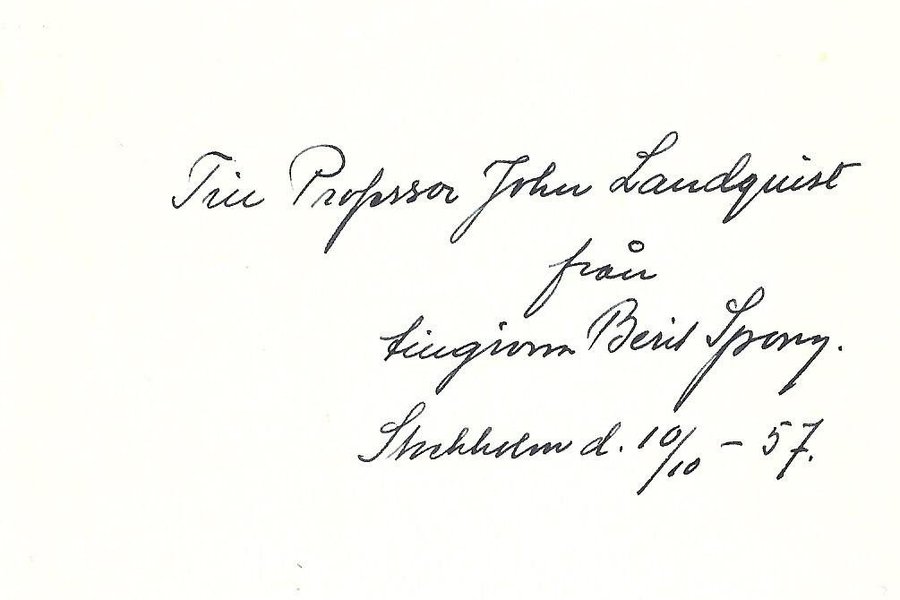 Till Professor John Landquist
från
tillgivna Berit Spong.
Stockholm d. 10/10 - 57.